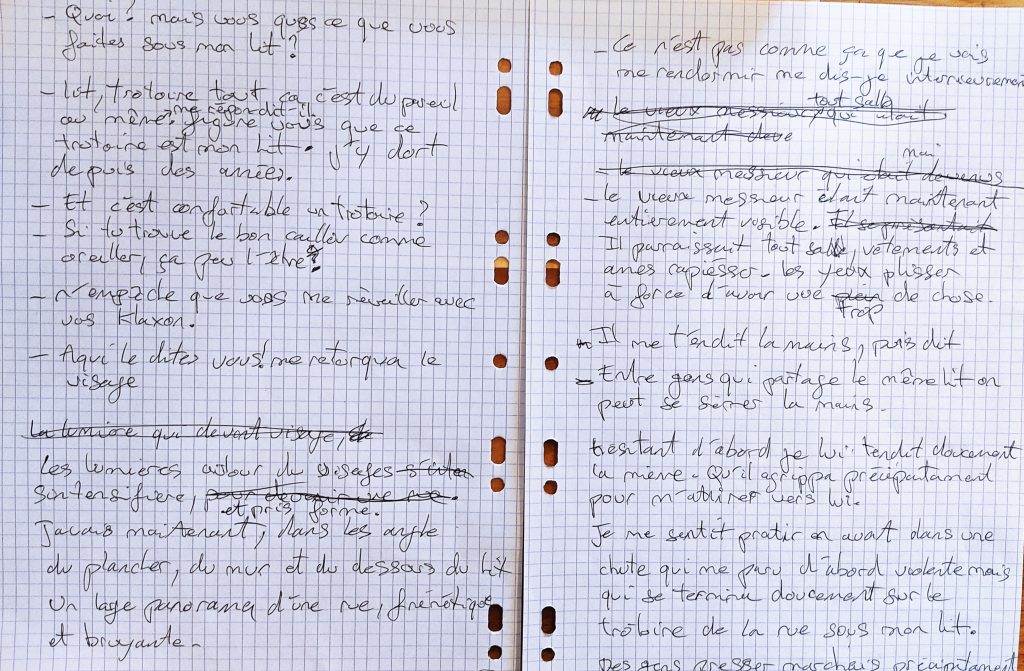 - Quoi? mais vous quesce que vous
faites sous mon lit?
- lit, trotoire tout ça, c'est du pareil
au même, me répondit-il. figuré vous que ce
trotoire est mon lit. j'y dort
depuis des années.
- Et c'est confortable un trotoire?
- Si tu trouve le bon caillèu comme
oreiller, ça peu l'être?
- n'empèche que vous me réveiller avec
vos klaxon.
- A qui le dites vous! me retorqua le
visage
La lumière qui devant visage, de
Les lumières autour du visages
sintensifière,
et pris forme.
J'avais maintenant, dans les angle
du plancher, du mur et du dessous du lit
un lage panorama d'une rue, frénétique
et bruyante.
- Ce n'est pas comme ça que je vais
me rendormir me dis-je interieurement
tout sale
le vieux messieur, qui était
maintenant deve
mai
le vieux messieur qui était devenus
- le vieux messieur était maintenant
entièrement visible. Il se présentait
Il parraissait tout sale, vêtements et
ames rapiésser. les yeux plisser
à force d'avoir vue plein de chose.
trop
- Il me tendit la mains, puis dit
- Entre gens qui partage le même lit on
peut se sèrrer la mains.
Hésitant d'abord je lui tendit doucement
la mienne. Qu'il agrippa précipantament
pour m'attirer vers lui.
Je me sentit pratir en avant dans une
chute qui me paru d'abord violente mais
qui se termina doucement sur le
trotoire de la rue sous mon lit.
Des gens presser marchais précipantament